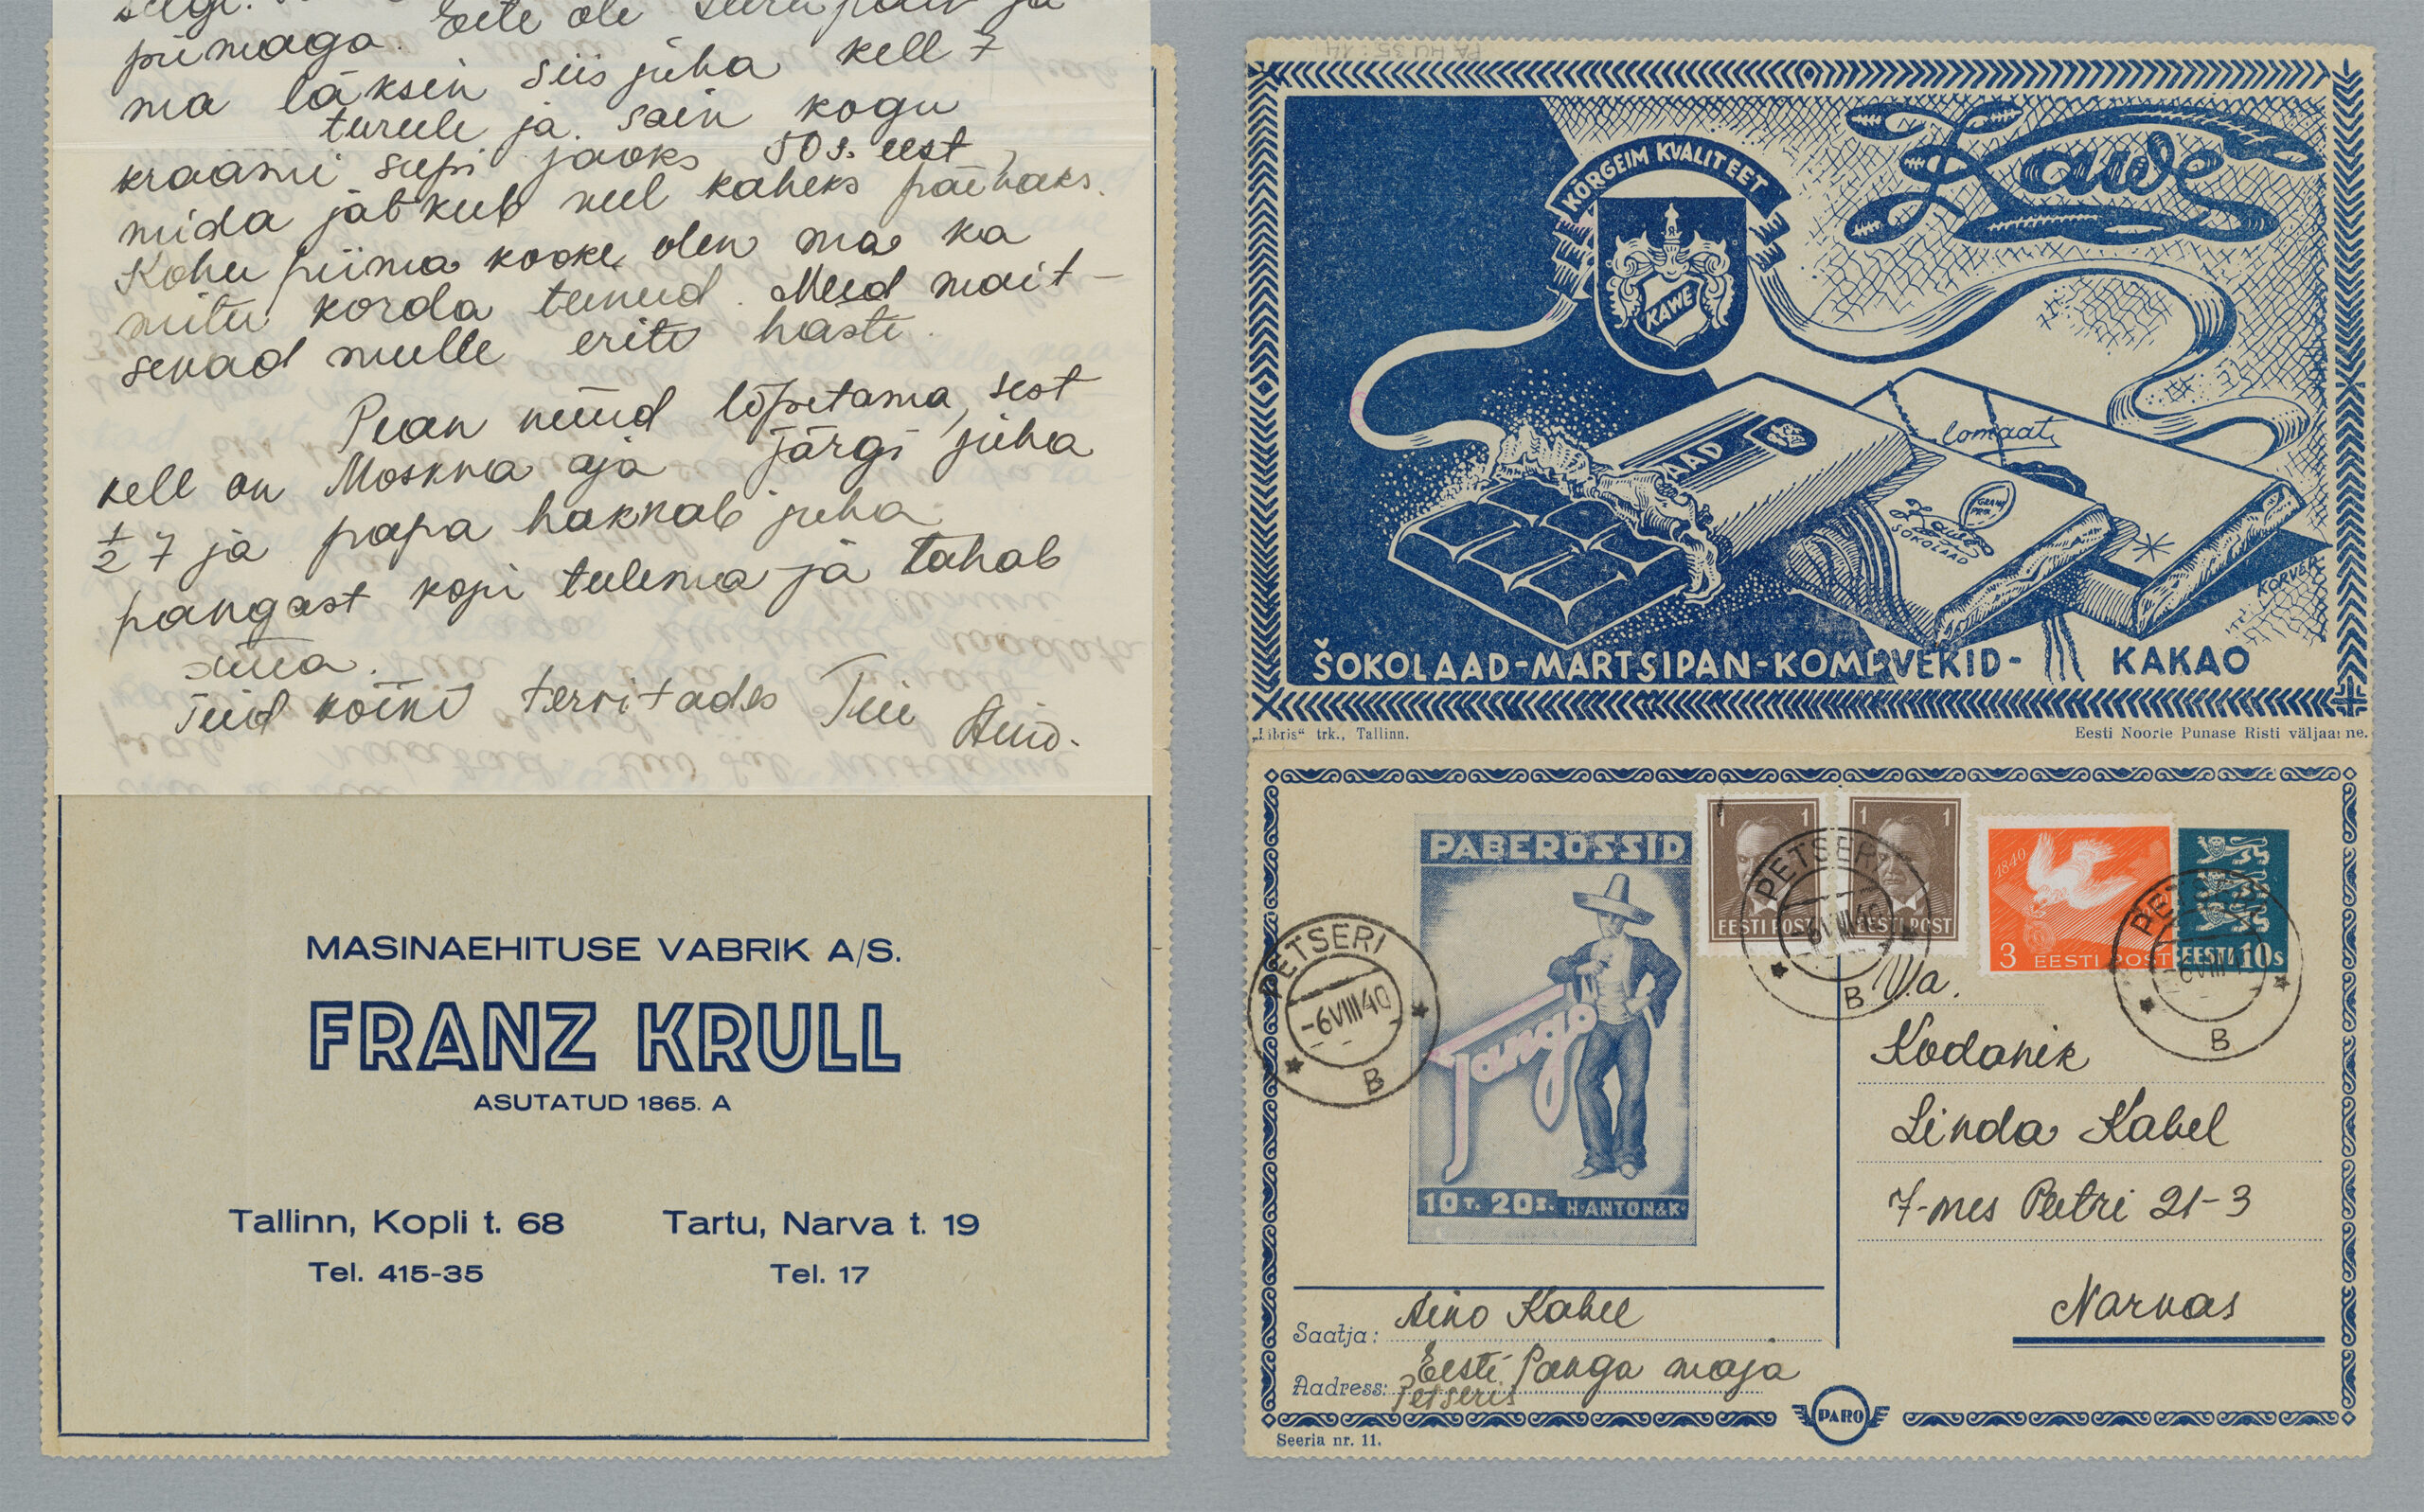 piimaga. Eile oli
ma läksin siis juba kell 7
turule ja sain kogu
kraami supi jaoks 50 s. eest,
mida jätkub veel kaheks päevaks.
Kohupiima kooke olen ma ka
mitu korda teinud. Need mait-
sevad mulle eriti hästi.
Pean nüüd lõpetama, sest
kell on Moskva aja järgi juba
½ 7 ja papa hakkab juba
pangast koju tulema ja tahab
süüa.
Teid kõiki tervitades Teie Aino.
MASINAEHITUSE VABRIK A/S.
FRANZ KRULL
ASUTATUD 1865. A
Tallinn, Kopli t. 68 Tartu, Narva t. 19
Tel. 415-35 Tel. 17
PÄ HU 35:14
KÕRGEIM KVALITEET
Kawe
KAWE
AAD
lomaat
GRAND PRIX
Kawe
ŠOKOLAAD
KORVEK
ŠOKOLAAD-MARTSIPAN-KOMPVEKID- KAKAO
„Libris“ trk., Tallinn. Eesti Noorte Punase Risti väljaanne.
PABEROSSID
Tango
10 T. 20 S. H. ANTON & K.
1 1
EESTI POST
1 1
EESTI POST
1840
3 EESTI POST
EESTI 10s
PETSERI
-6VIII40
B
PETSERI
-6VIII40
B
PETSERI
-6VIII40
B
V.a.
Kodanik
Linda Kabel
7-mes Peetri 21-3
Narvas
Saatja: Aino Kabel
Aadress: Eesti Panga maja
Petseris
PARO
Seeria nr. 11.